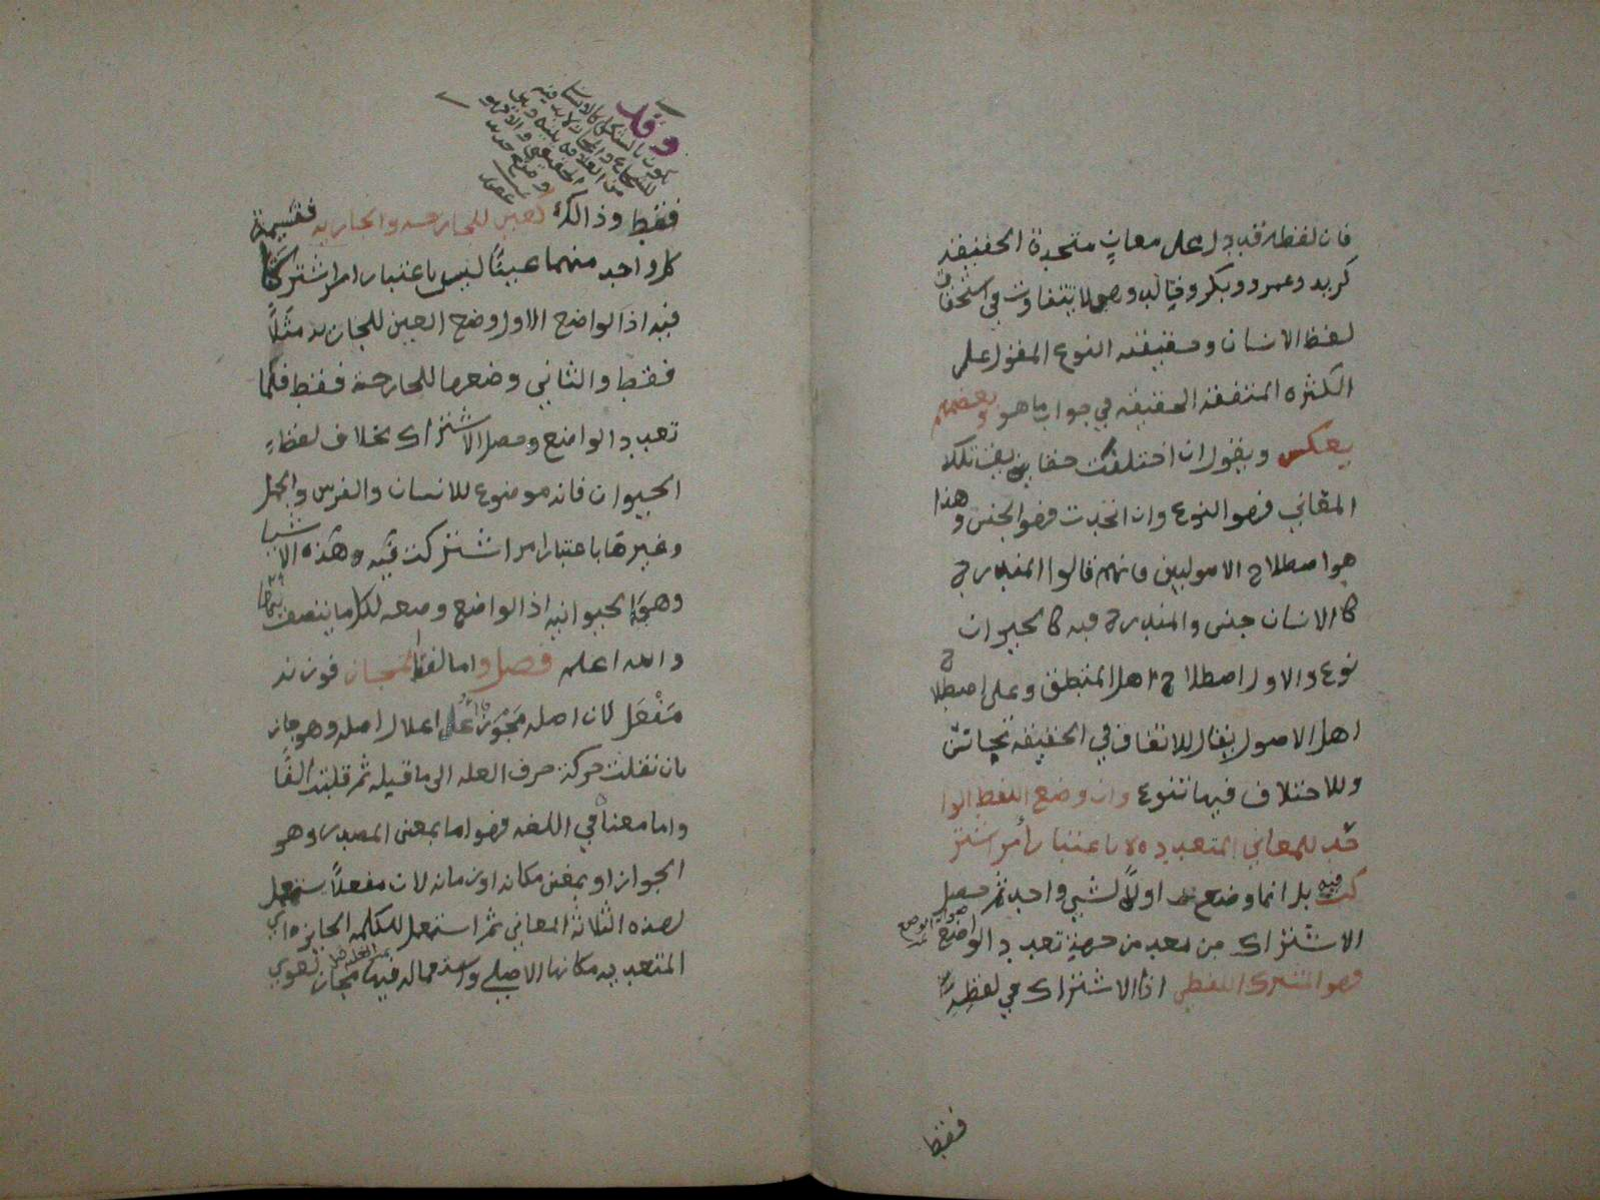 فان لفظه قد دل على معان متحدة الحقيقة
كزيد وعمرو وبكر وخالد وهي لا تتفاوت في استحقاق
لفظ الانسان وحقيقته النوع المقول على
الكثره المتفقة الحقيقه في جواب ما هو وبعضهم
يعكس ويقول ان اختلفت حقايق تلك
المعاني فهو النوع وان اتحدت فهو الجنس وهذا
هو اصطلاح الاصوليين فانهم قالوا المندرج
كالانسان جنس والمندرج فيه كالحيوان
نوع والاول اصطلاح اهل المنطق وعلى اصطلاح
اهل الاصول يقال للاتفاق في الحقيقه تجانس
وللاختلاف فيها تنوع وان وضع اللفظ الوا
حد للمعاني المتعدده لا باعتبار أمر اشتر
كت فيه بل انما وضع اولاً لشي واحد ثم حصل
الاشتراك من بعد من جهة تعدد الواضع
فهو المشترك اللفظي اذ الاشتراك في لفظه
فقط
وقد
فقط وذالك كعين للجارحه والجاريه فتسمية
كل واحد منهما عينًا ليس باعتبار امر اشتركتا
فيه اذ الواضع الاول وضع العين للجاريه مثلًا
فقط والثاني وضعها للجارحة فقط فلما
تعدد الواضع وحصل الاشتراك بخلاف لفظة
الحيوان فانه موضوع للانسان والفرس والجمل
وغيرها باعتبار امر اشتركت فيه وهذه الاشيا
وهو الحيوانيه اذ الواضع وضعه لكل ما يتصف بها
والله اعلم فصل واما لفظ المجاز فوزنه
مَفْعَل لان اصله مَجْوَز أُعل اعلال اصله وهو جاز
بان نقلت حركة حرف العله الى ما قبله ثم قلبت الفًا
واما معناه في اللغه فهو اما بمعنى المصدر وهو
الجواز او بمعنى مكانه او زمانه لان مفعلاً يستعمل
لهذه الثلاثة المعاني ثم استعمل للكلمه الجايزه اي
المتعديه مكانها الاصلي